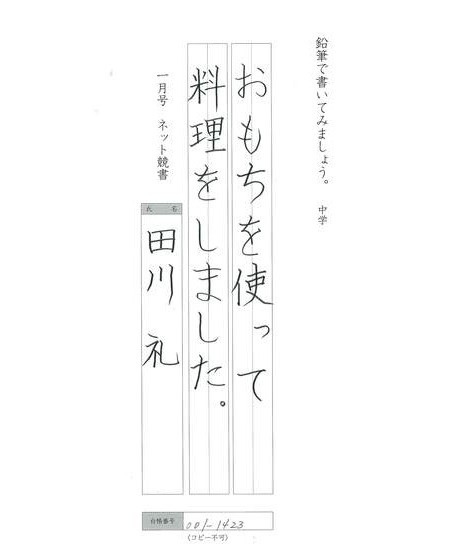 鉛筆で書いてみましょう。 中学
おもちを使って
料理をしました。
一月号 ネット競書
氏 名
田川 礼
合格番号 001-1423
(コピー不可)